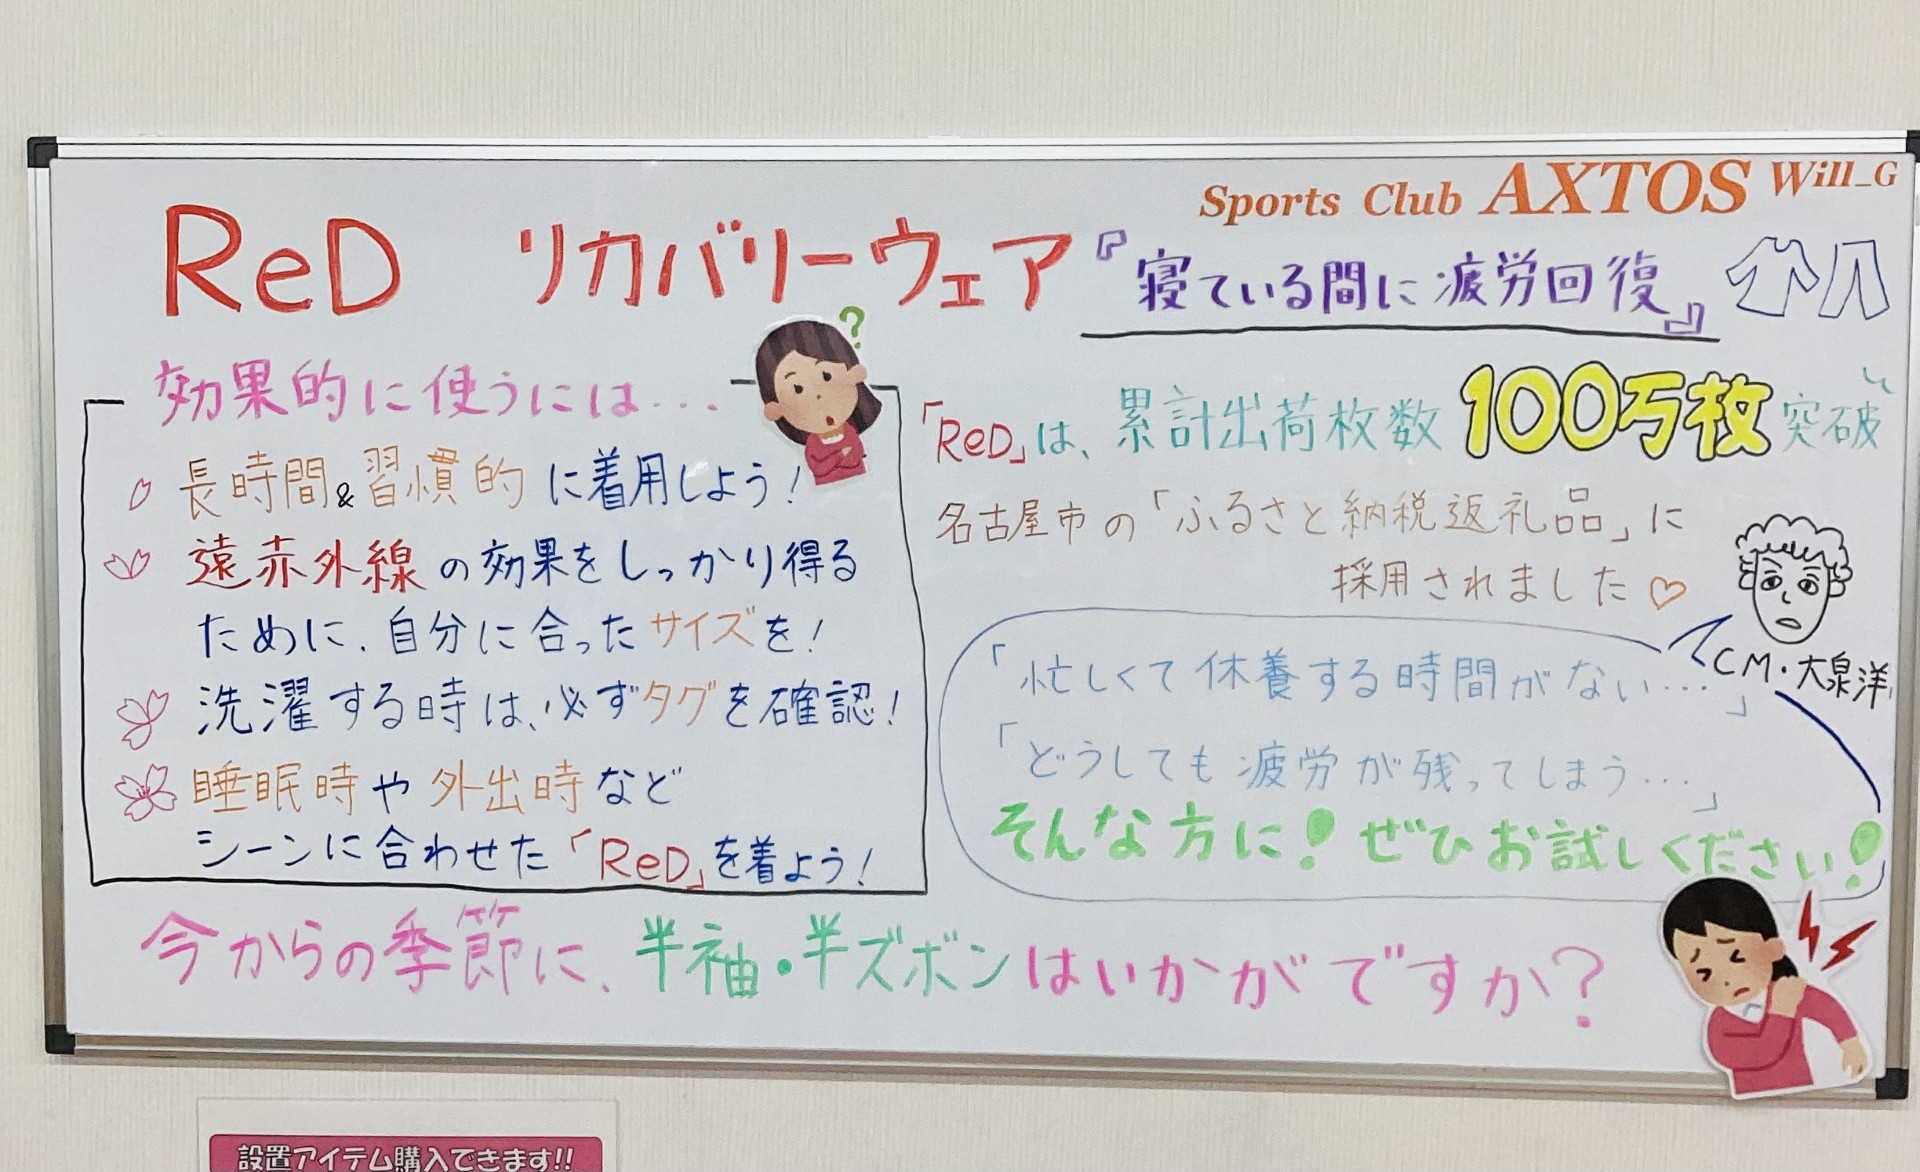 Sports Club AXTOS Will_G
ReD リカバリーウェア『寝ている間に疲労回復』
効果的に使うには…
?
長時間&習慣的に着用しよう!
遠赤外線の効果をしっかり得る
ために、自分に合ったサイズを!
洗濯する時は、必ずタグを確認!
睡眠時や外出時など
シーンに合わせた「ReD」を着よう!
「ReD」は、累計出荷枚数100万枚突破
名古屋市の「ふるさと納税返礼品」に
採用されました♡
CM・大泉洋
「忙しくて休養する時間がない…」
「どうしても疲労が残ってしまう…」
そんな方に!ぜひお試しください!
今からの季節に、半袖・半ズボンはいかがですか?
設置アイテム購入できます!!